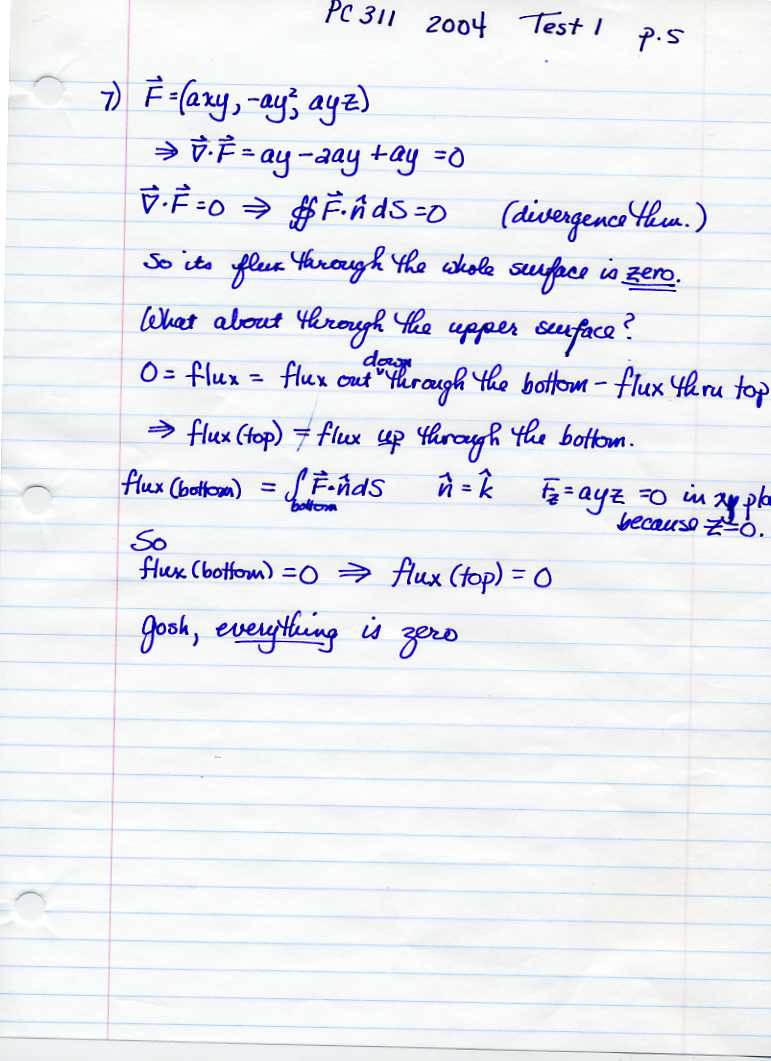 PC 311 2004 Test 1 p.5
7) F⃗ = (axy, -ay², ayz)
⇒ ∇⃗·F⃗ = ay - 2ay + ay = 0
∇⃗·F⃗ = 0 ⇒ ∯ F⃗·n̂ dS = 0 (divergence thm.)
So its flux through the whole surface is zero.
What about through the upper surface?
0 = flux = flux out down through the bottom - flux thru top
⇒ flux (top) = flux up through the bottom.
flux (bottom) = ∫bottom F⃗·n̂ dS n̂ = k̂ Fz = ayz = 0 in xy pla
because z=0.
So
flux (bottom) = 0 ⇒ flux (top) = 0
Gosh, everything is zero